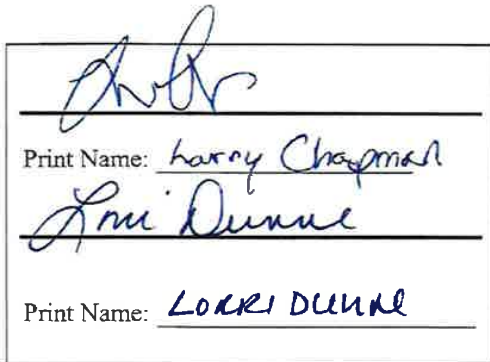 Print Name: Larry Chapman
Lorri Dunne
Print Name: LORRI DUNNE